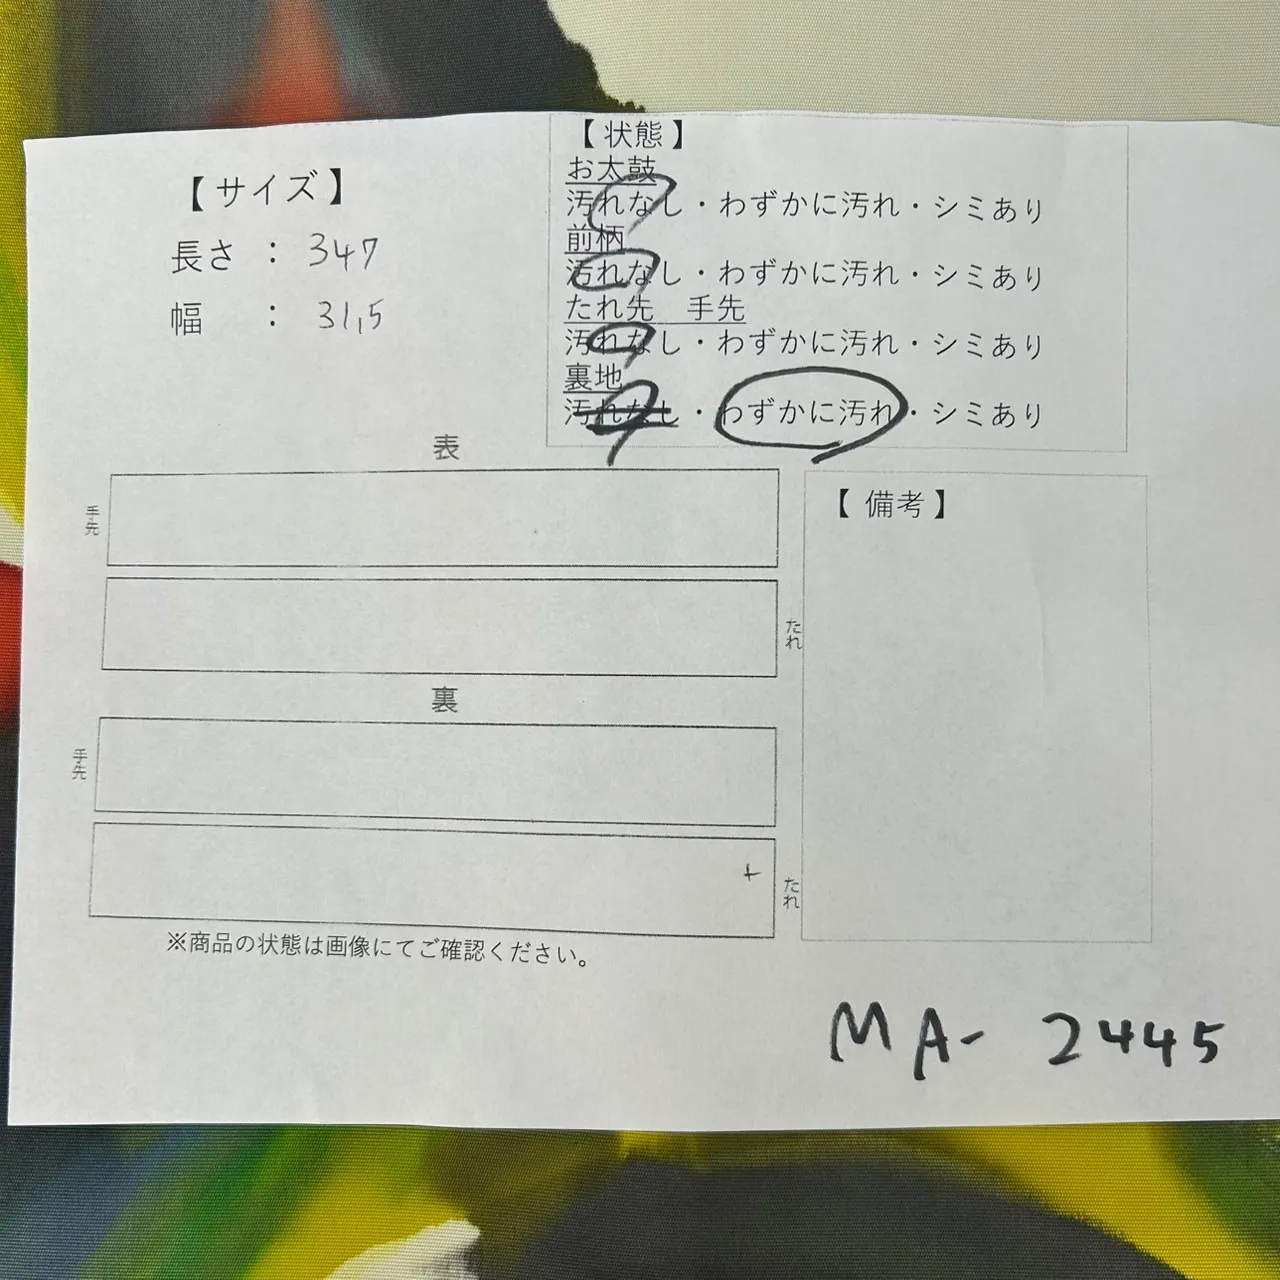 【サイズ】
長さ : 347
幅 : 31,5
【状態】
お太鼓
汚れなし・わずかに汚れ・シミあり
前柄
汚れなし・わずかに汚れ・シミあり
たれ先 手先
汚れなし・わずかに汚れ・シミあり
裏地
汚れなし・わずかに汚れ・シミあり
表
手先
たれ
裏
手先
たれ
※商品の状態は画像にてご確認ください。
【備考】
MA- 2445